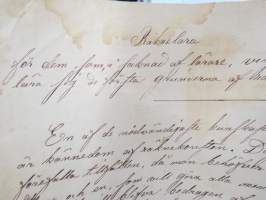 Räknelära
för dem, som i saknad af lärare, vilja
lära sig de första grunderna af
En af de nödvändigaste kunskaper
är kännedom af räknekonsten. D
förefalla tillfällen, då man behöfver
och en, som vill göra alla
bedragen af